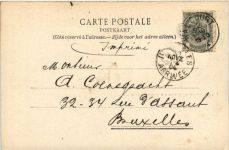 CARTE POSTALE
POSTKAART
(Côté réservé à l'adresse. — Zijde voor het adres alleen.)
Imprimé
ARRIVÉE
Monsieur
A. Coenegracht
32-34 rue d'Assaut
Bruxelles